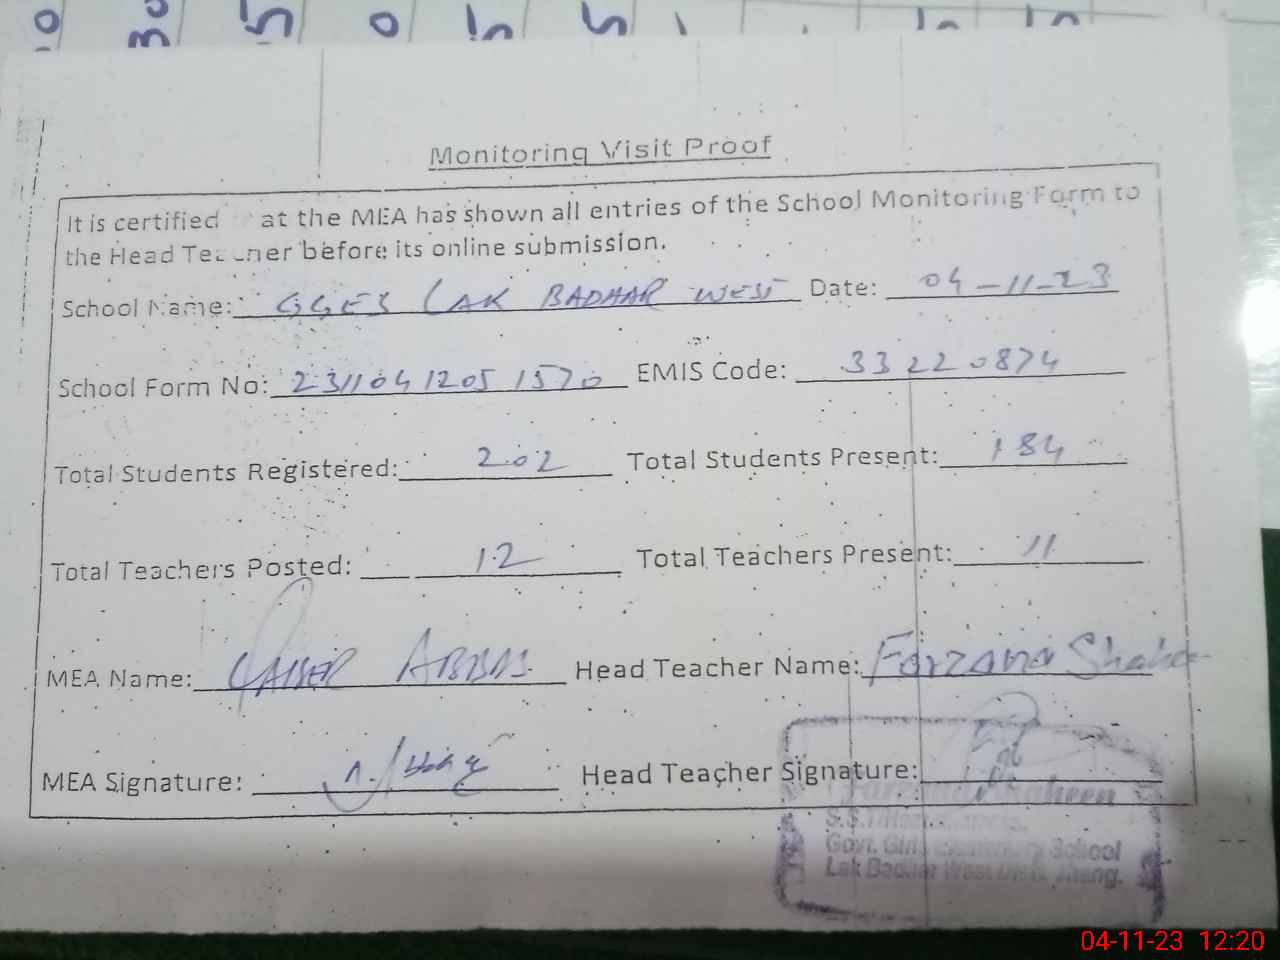 30 5 0 5 5
Monitoring Visit Proof
It is certified at the MEA has shown all entries of the School Monitoring Form to
the Head Teacher before its online submission.
School Name: GGES LAK BADHAR WEST Date: 04-11-23
School Form No: 23110412051570 EMIS Code: 33220874
Total Students Registered: 202 Total Students Present: 184
Total Teachers Posted: 12 Total Teachers Present: 11
MEA Name: QAISER ABBAS Head Teacher Name: Farzana Shaheen
MEA Signature: Head Teacher Signature:
Farzana Shaheen
S.S.T
Govt. Girls Elementary School
Lak Badhar West Distt. Jhang.
04-11-23 12:20